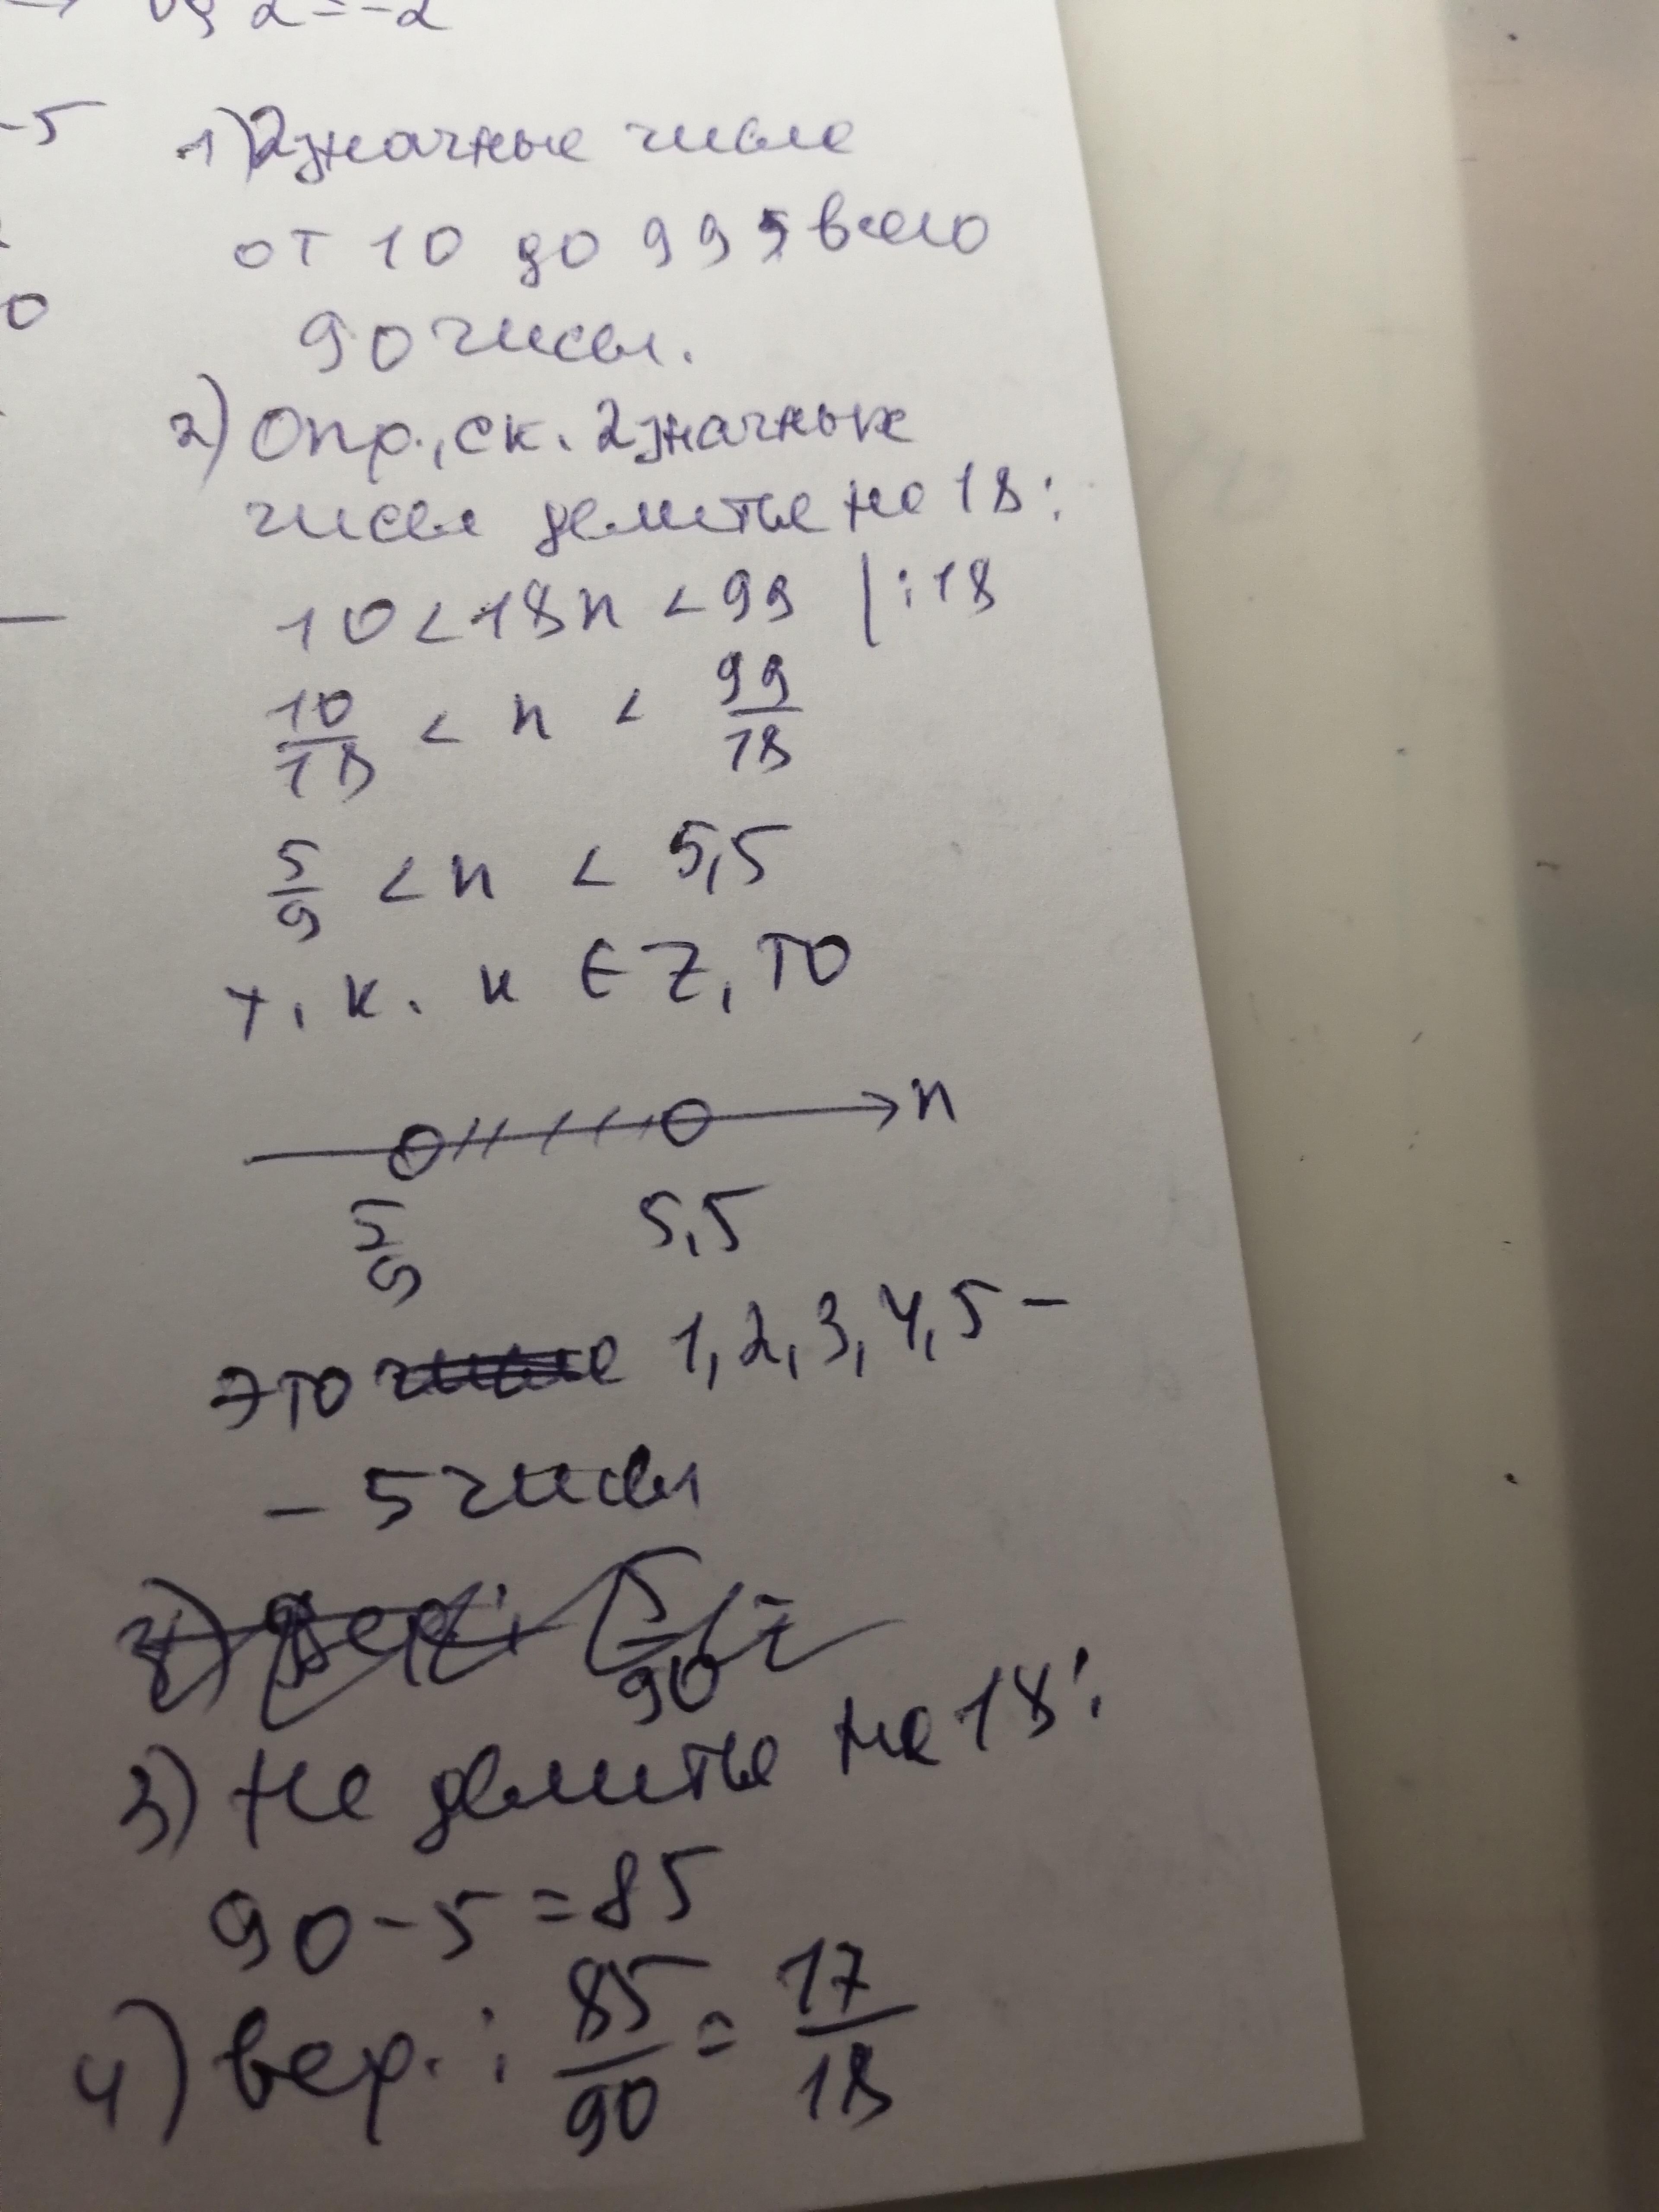 tg α = -2
-5
0
1) 2значные числа
от 10 до 99, всего
90 чисел.
2) Опр., ск. 2значных
чисел делится на 18:
10 < 18n < 99 | :18
10/18 < n < 99/18
5/9 < n < 5,5
т. к. n ∈ Z, то
n
5/9 5,5
это 1, 2, 3, 4, 5 -
- 5 чисел
5/90
3) Не делится на 18:
90 - 5 = 85
4) вер. : 85/90 = 17/18